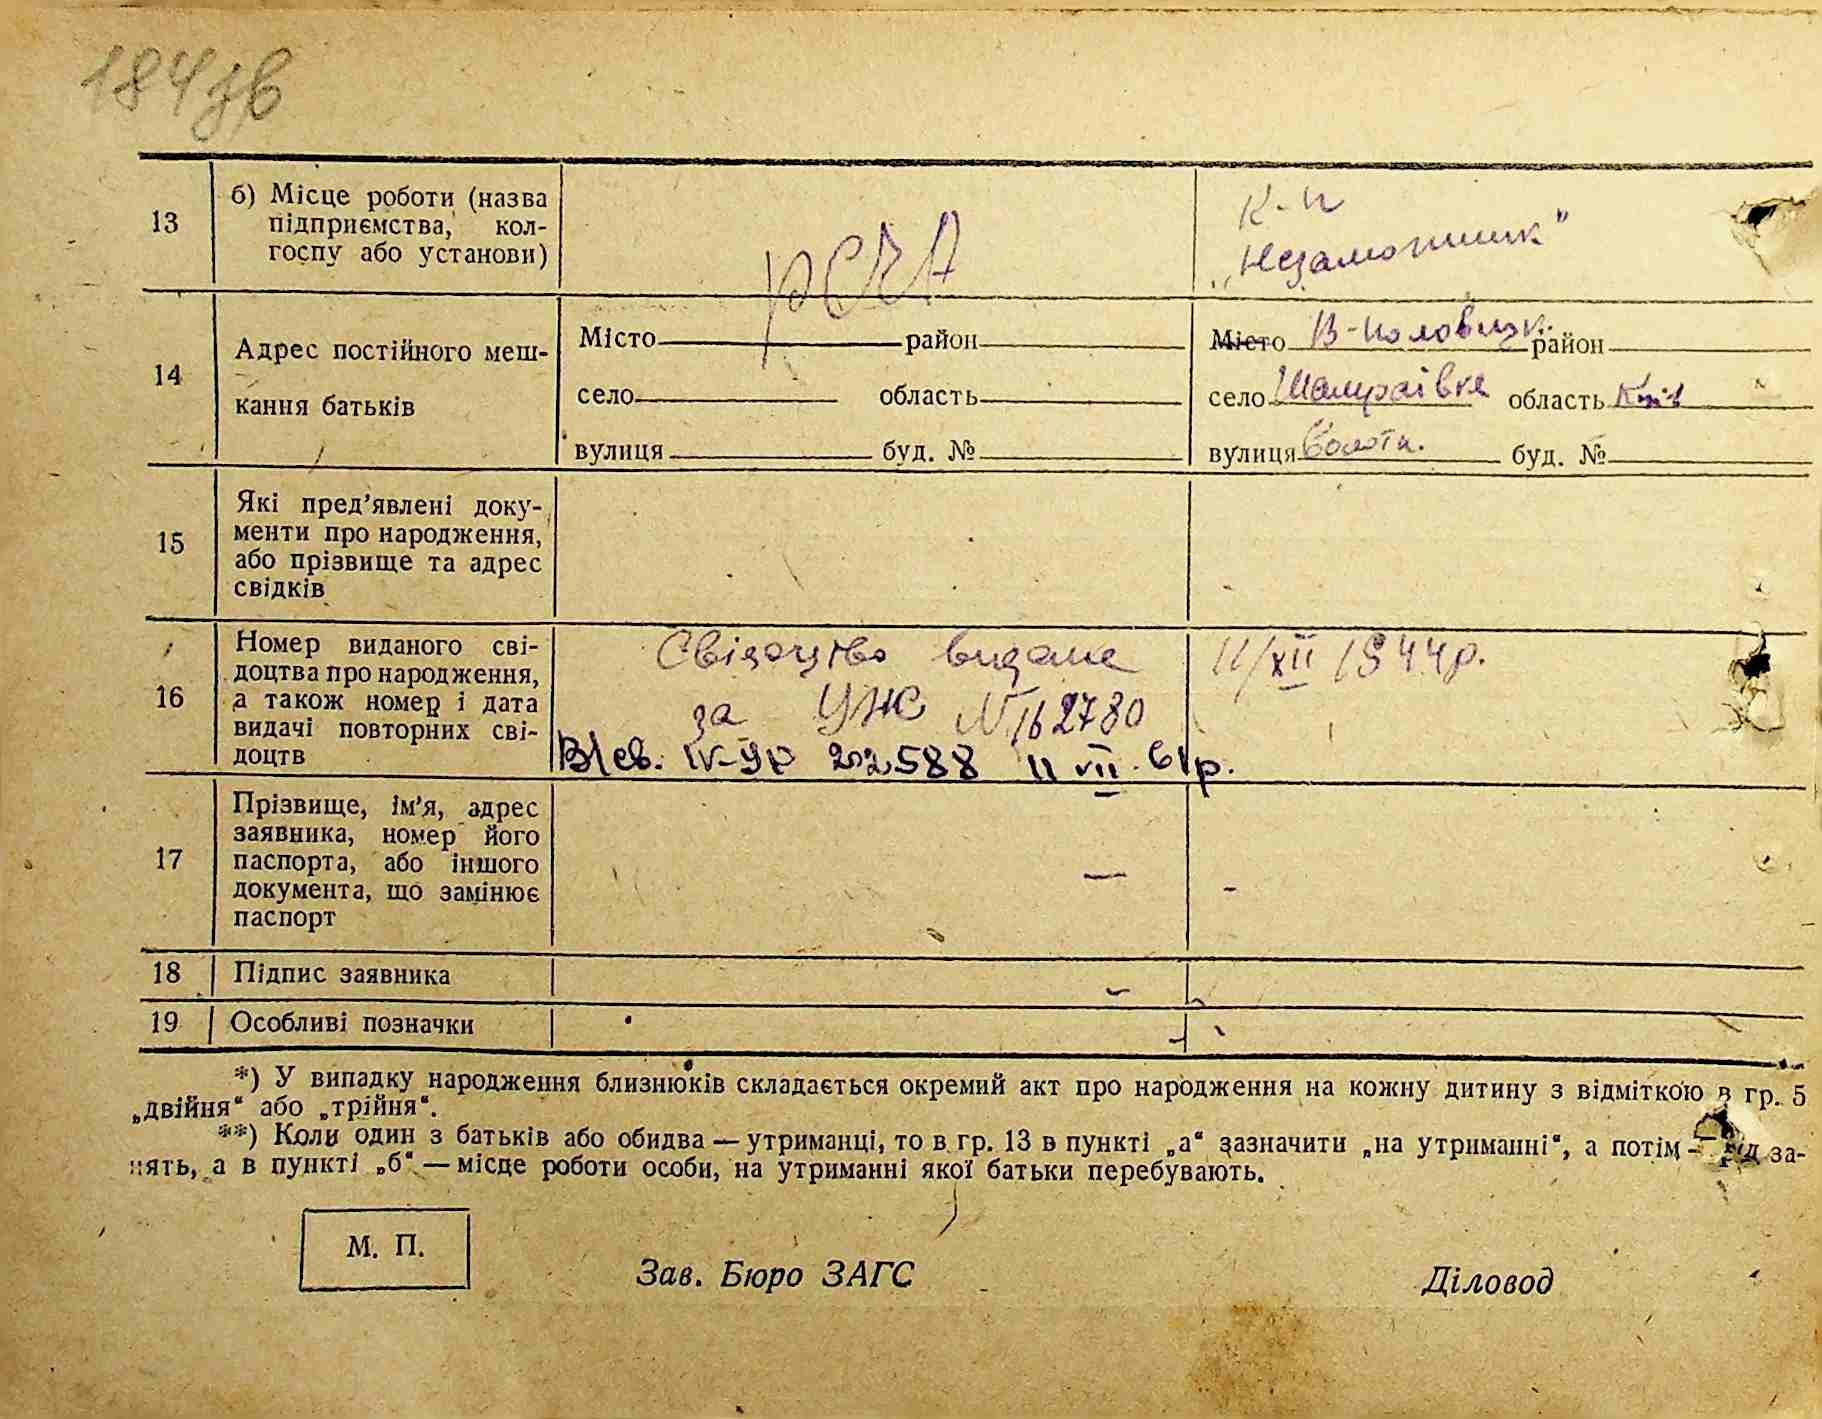 184 зв
13
б) Місце роботи (назва
підприємства, кол-
госпу або установи)
РСЧА
К-п
„Незаможник"
14
Адрес постійного меш-
кання батьків
Місто район
село область
вулиця буд. №
Місто В-Половецк. район
село Шамраївка область Київ
вулиця буд. №
15
Які пред'явлені доку-
менти про народження,
або прізвище та адрес
свідків
16
Номер виданого сві-
доцтва про народження,
а також номер і дата
видачі повторних сві-
доцтв
Свідоцтво видане 11/XII 1944р.
за УЖ № 162780
В/св. IV-УР 202588 11 VII. 61р.
17
Прізвище, ім'я, адрес
заявника, номер його
паспорта, або іншого
документа, що замінює
паспорт
—
-
18 Підпис заявника
19 Особливі позначки
*) У випадку народження близнюків складається окремий акт про народження на кожну дитину з відміткою в гр. 5
„двійня“ або „трійня“.
**) Коли один з батьків або обидва — утриманці, то в гр. 13 в пункті „а“ зазначити „на утриманні“, а потім — рід за-
нять, а в пункті „б“ — місце роботи особи, на утриманні якої батьки перебувають.
М. П.
Зав. Бюро ЗАГС
Діловод